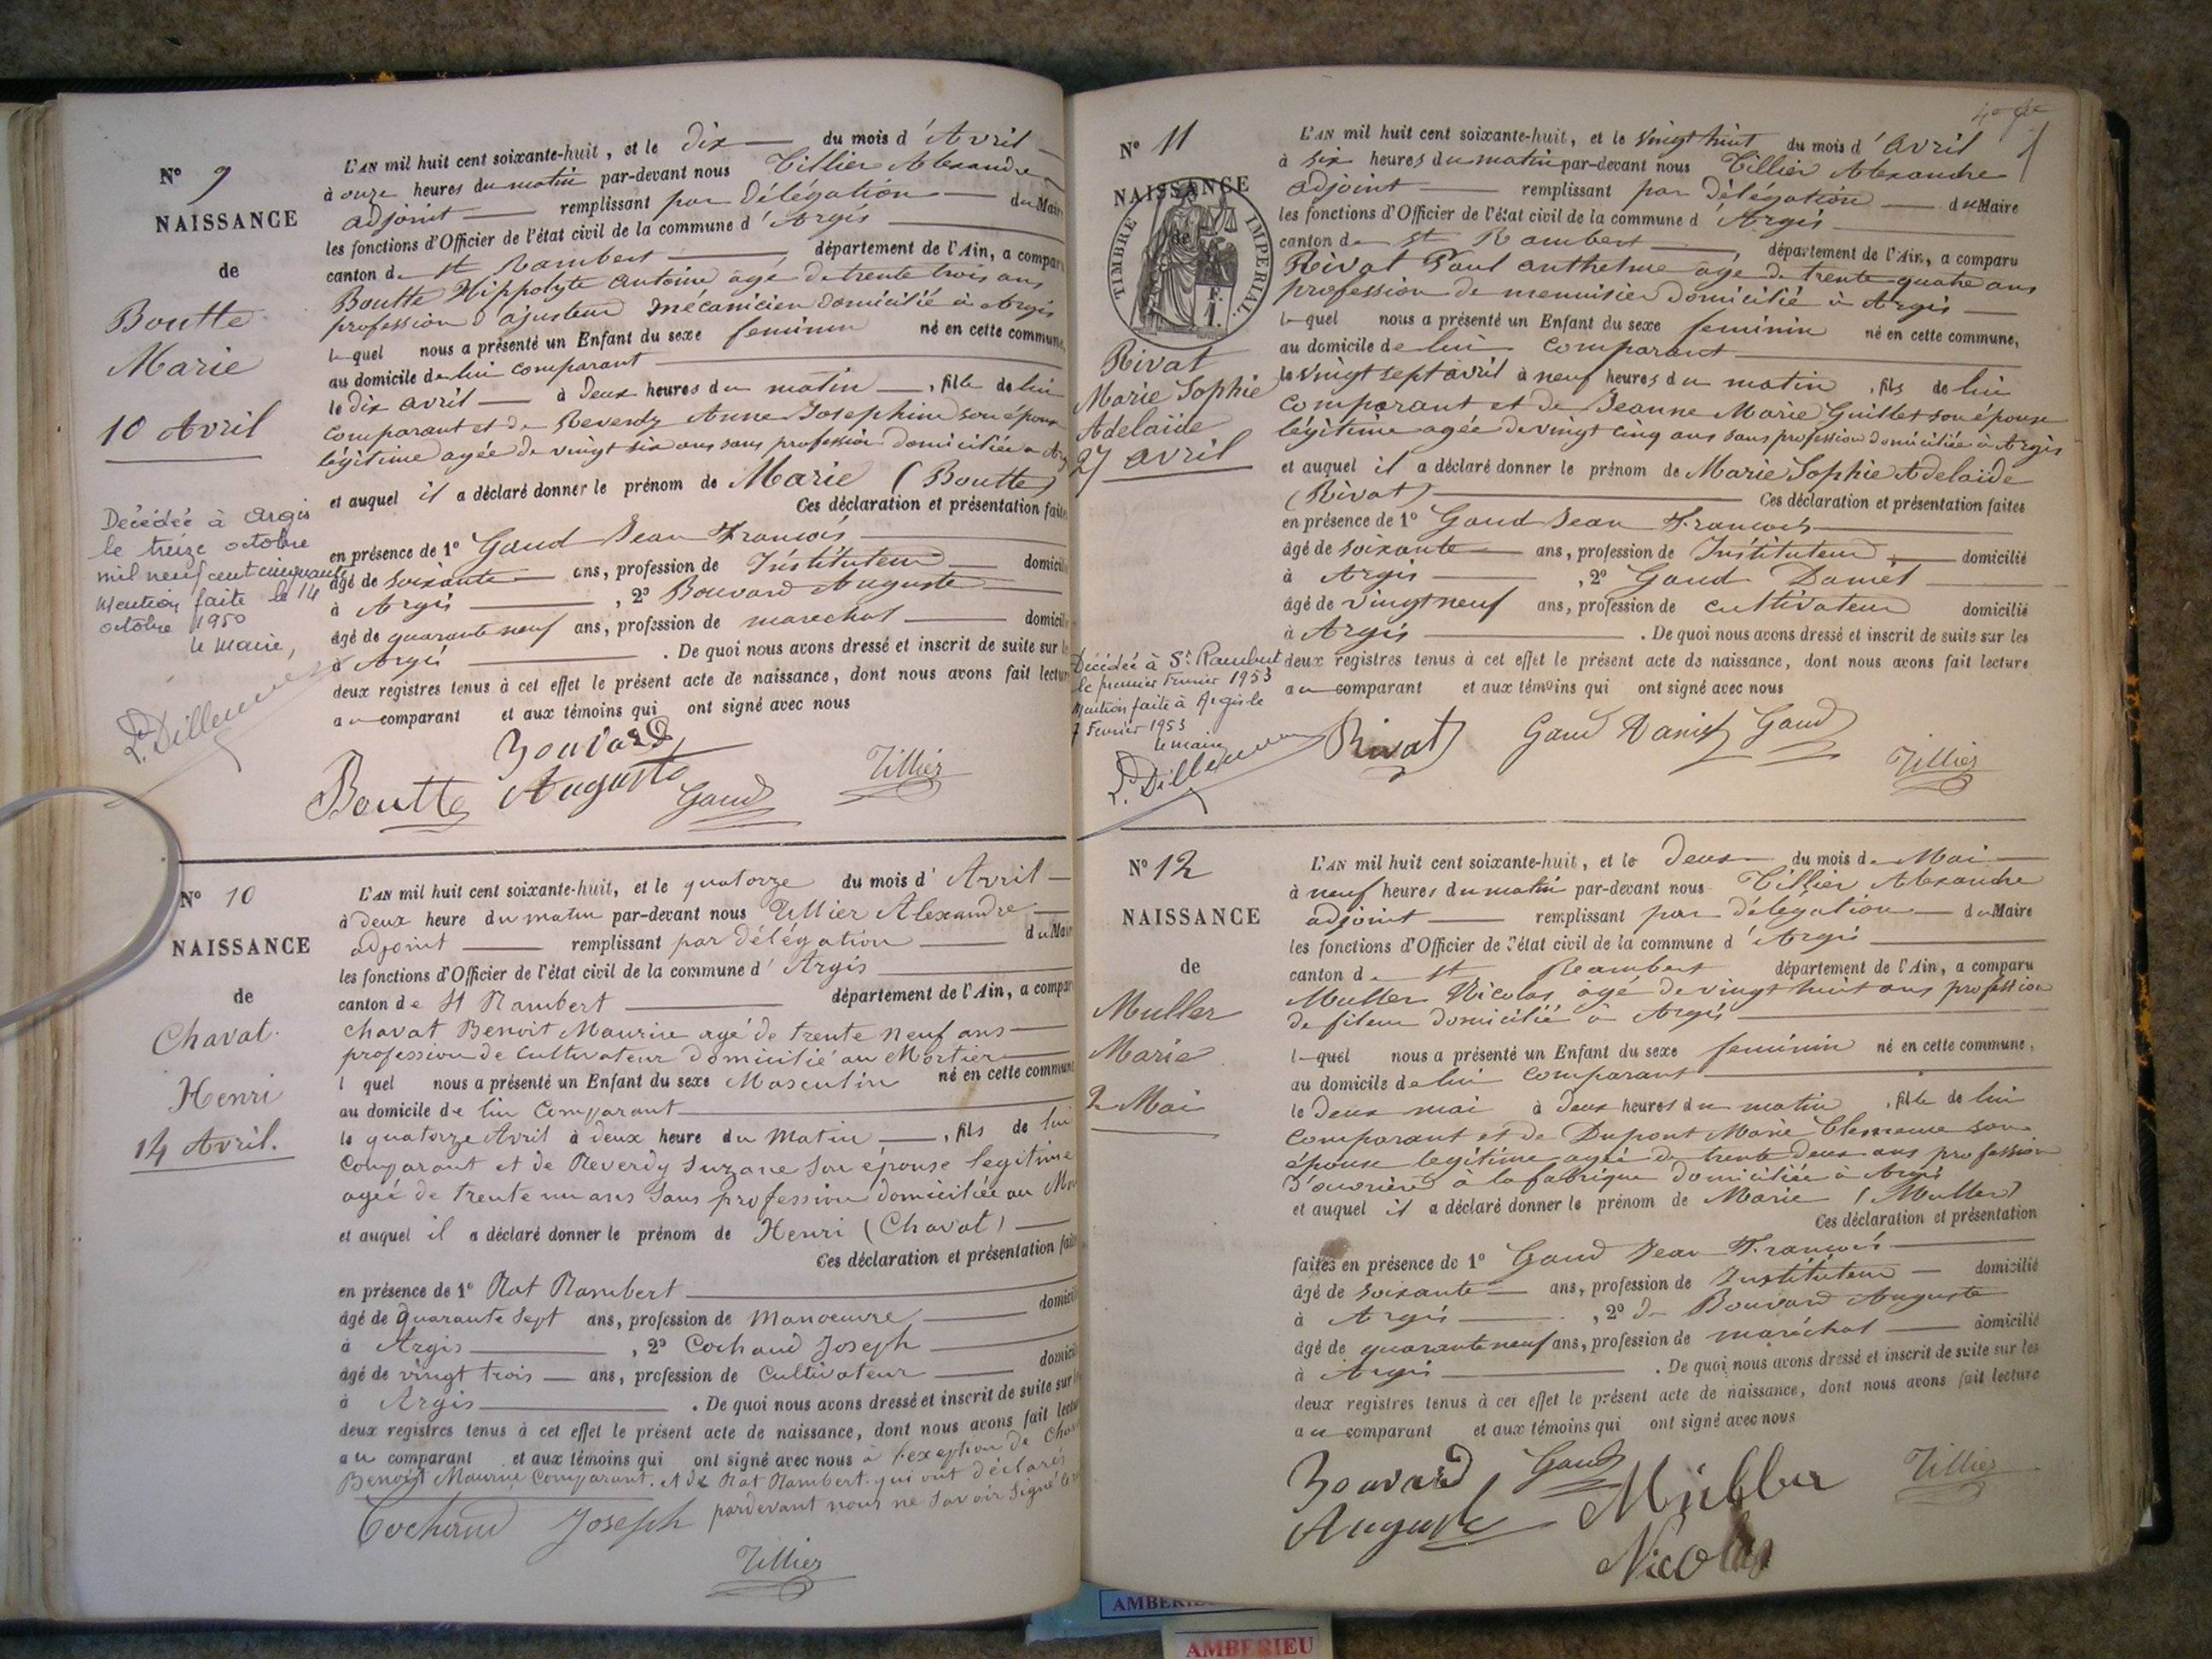 N° 9
NAISSANCE
de
Boutte
Marie
10 Avril
L'AN mil huit cent soixante-huit, et le dix du mois d'Avril
à onze heures du matin par-devant nous Tillier Alexandre
adjoint remplissant par délégation du Maire
les fonctions d'Officier de l'état civil de la commune d'Argis
canton de St Rambert département de l'Ain, a compar
Boutte Hippolyte Antoine âgé de trente trois ans
profession d'ajusteur mécanicien domicilié à Argis
lequel nous a présenté un Enfant du sexe feminin né en cette commune,
au domicile de lui comparant
le dix avril à deux heures du matin, fille de lui
comparant et de Reverdy Anne Josephine son épouse
légitime agée de vingt six ans sans profession domiciliée à Arg
et auquel il a déclaré donner le prénom de Marie (Boutte)
Ces déclaration et présentation faites
en présence de 1° Gaud Jean François
âgé de soixante ans, profession de Instituteur domicilié
à Argis, 2° Bouvard Auguste
âgé de quarante neuf ans, profession de marechal domicilié
à Argis. De quoi nous avons dressé et inscrit de suite sur les
deux registres tenus à cet effet le présent acte de naissance, dont nous avons fait lecture
au comparant et aux témoins qui ont signé avec nous
Décédée à Argis
le treize octobre
mil neuf cent cinquante
Mention faite le 14
octobre 1950
le Maire,
Bouvard
Boutte Auguste Gaud Tillier
N° 10
NAISSANCE
de
Chavat.
Henri
14 Avril.
L'AN mil huit cent soixante-huit, et le quatorze du mois d'Avril
à deux heure du matin par-devant nous Tillier Alexandre
adjoint remplissant par délégation du Maire
les fonctions d'Officier de l'état civil de la commune d'Argis
canton de St Rambert département de l'Ain, a compar
Chavat Benoit Maurice agé de trente neuf ans
profession de Cultivateur domicilié au Mortier
l quel nous a présenté un Enfant du sexe Masculin né en cette commune
au domicile de lui Comparant
le quatorze Avril à deux heure du Matin, fils de lui
Comparant et de Reverdy Suzane son épouse legitime
agée de trente un ans Sans profession domiciliée au Mor
et auquel il a déclaré donner le prénom de Henri (Chavat)
Ces déclaration et présentation faites
en présence de 1° Rat Rambert
âgé de quarante sept ans, profession de Manoeuvre domicilié
à Argis, 2° Cochaud Joseph
âgé de vingt trois ans, profession de Cultivateur domicilié
à Argis. De quoi nous avons dressé et inscrit de suite sur les
deux registres tenus à cet effet le présent acte de naissance, dont nous avons fait lecture
au comparant et aux témoins qui ont signé avec nous à l'exception de Chava
Benoit Maurice Comparant. et de Rat Rambert. qui ont déclarés
pardevant nous ne savoir signé
Cochaud Joseph
Tillier
N° 11
NAISSANCE
de
TIMBRE IMPERIAL
1 F.
Rivat
Marie Sophie
Adelaïde
27 avril
L'AN mil huit cent soixante-huit, et le vingt huit du mois d'Avril
à six heures du matin par-devant nous Tillier Alexandre
adjoint remplissant par délégation du Maire
les fonctions d'Officier de l'état civil de la commune d'Argis
canton de St Rambert département de l'Ain, a comparu
Rivat Paul Anthelme agé de trente quatre ans
profession de menuisier domicilié à Argis
lequel nous a présenté un Enfant du sexe feminin né en cette commune,
au domicile de lui comparant
le vingt sept avril à neuf heures du matin, fils de lui
comparant et de Jeanne Marie Guillet son épouse
légitime agée de vingt cinq ans sans profession domiciliée à Argis
et auquel il a déclaré donner le prénom de Marie Sophie Adelaïde
(Rivat) Ces déclaration et présentation faites
en présence de 1° Gaud Jean François
âgé de soixante ans, profession de Instituteur domicilié
à Argis, 2° Gaud Daniel
âgé de vingt neuf ans, profession de cultivateur domicilié
à Argis. De quoi nous avons dressé et inscrit de suite sur les
deux registres tenus à cet effet le présent acte de naissance, dont nous avons fait lecture
au comparant et aux témoins qui ont signé avec nous
Décédée à St Rambert
le premier Février 1953
Mention faite à Argis le
7 Février 1953
le maire
Rivat Gaud Daniel Gaud Tillier
N° 12
NAISSANCE
de
Muller
Marie
2 Mai
L'AN mil huit cent soixante-huit, et le deux du mois de Mai
à neuf heures du matin par-devant nous Tillier Alexandre
adjoint remplissant par délégation du Maire
les fonctions d'Officier de l'état civil de la commune d'Argis
canton de St Rambert département de l'Ain, a comparu
Muller Nicolas agé de vingt huit ans profession
de fileur domicilié à Argis
lequel nous a présenté un Enfant du sexe feminin né en cette commune,
au domicile de lui comparant
le deux mai à deux heures du matin, fille de lui
comparant et de Dupont Marie Clemence son
épouse legitime agée de trente deux ans profession
d'ouvrière à la fabrique domiciliée à Argis
et auquel il a déclaré donner le prénom de Marie (Muller)
Ces déclaration et présentation
faites en présence de 1° Gaud Jean François
âgé de soixante ans, profession de Instituteur domicilié
à Argis, 2° de Bouvard Auguste
âgé de quarante neuf ans, profession de maréchal domicilié
à Argis. De quoi nous avons dressé et inscrit de suite sur les
deux registres tenus à cet effet le présent acte de naissance, dont nous avons fait lecture
au comparant et aux témoins qui ont signé avec nous
Bouvard Gaud Müller Tillier
Auguste Nicolas
AMBERIEU